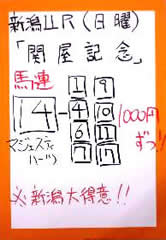 新潟11R(日曜)
「関屋記念」
馬連
1 9
14 - 4 10 1000円
6 11 ずつ!!
マジェスティ
ハーツ
7 17
※新潟大得意!!